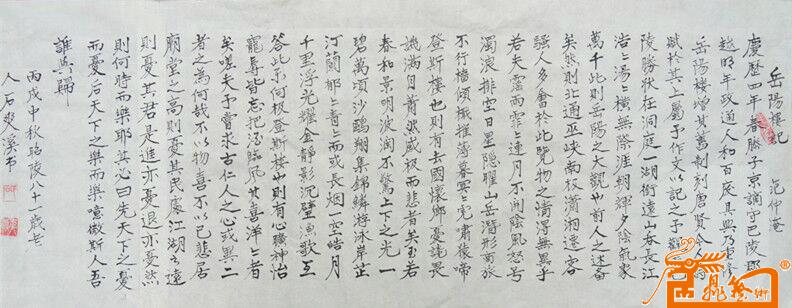 岳陽樓記 范仲淹
慶歷四年春滕子京謫守巴陵郡
越明年政通人和百廢具興乃重修
岳陽樓增其舊制刻唐賢今
賦於其上屬予作文以記之予觀
陵勝狀在洞庭一湖銜遠山吞長江
浩浩湯湯橫無際涯朝暉夕陰氣象
萬千此則岳陽之大觀也前人之述備
矣然則北通巫峽南極瀟湘遷客
騷人多會於此覽物之情得無異乎
若夫霪雨霏霏連月不開陰風怒号
濁浪排空日星隱耀山岳潛形商旅
不行檣傾楫摧薄暮冥冥虎嘯猿啼
登斯樓也則有去國懷鄉憂讒畏
譏滿目蕭然感極而悲者矣至若
春和景明波瀾不驚上下天光一
碧萬頃沙鷗翔集錦鱗游泳岸芷
汀蘭郁郁青青而或長煙一空皓月
千里浮光耀金靜影沉璧漁歌互
答此樂何極登斯樓也則有心曠神怡
寵辱皆忘把酒臨風其喜洋洋者
矣嗟夫予嘗求古仁人之心或異二
者之為何哉不以物喜不以己悲居
廟堂之高則憂其民處江湖之遠
則憂其君是進亦憂退亦憂然
則何時而樂耶其必曰先天下之憂
而憂后天下之樂而樂噫微斯人吾
誰與歸
丙戌中秋昭陵八十一歲老
人石